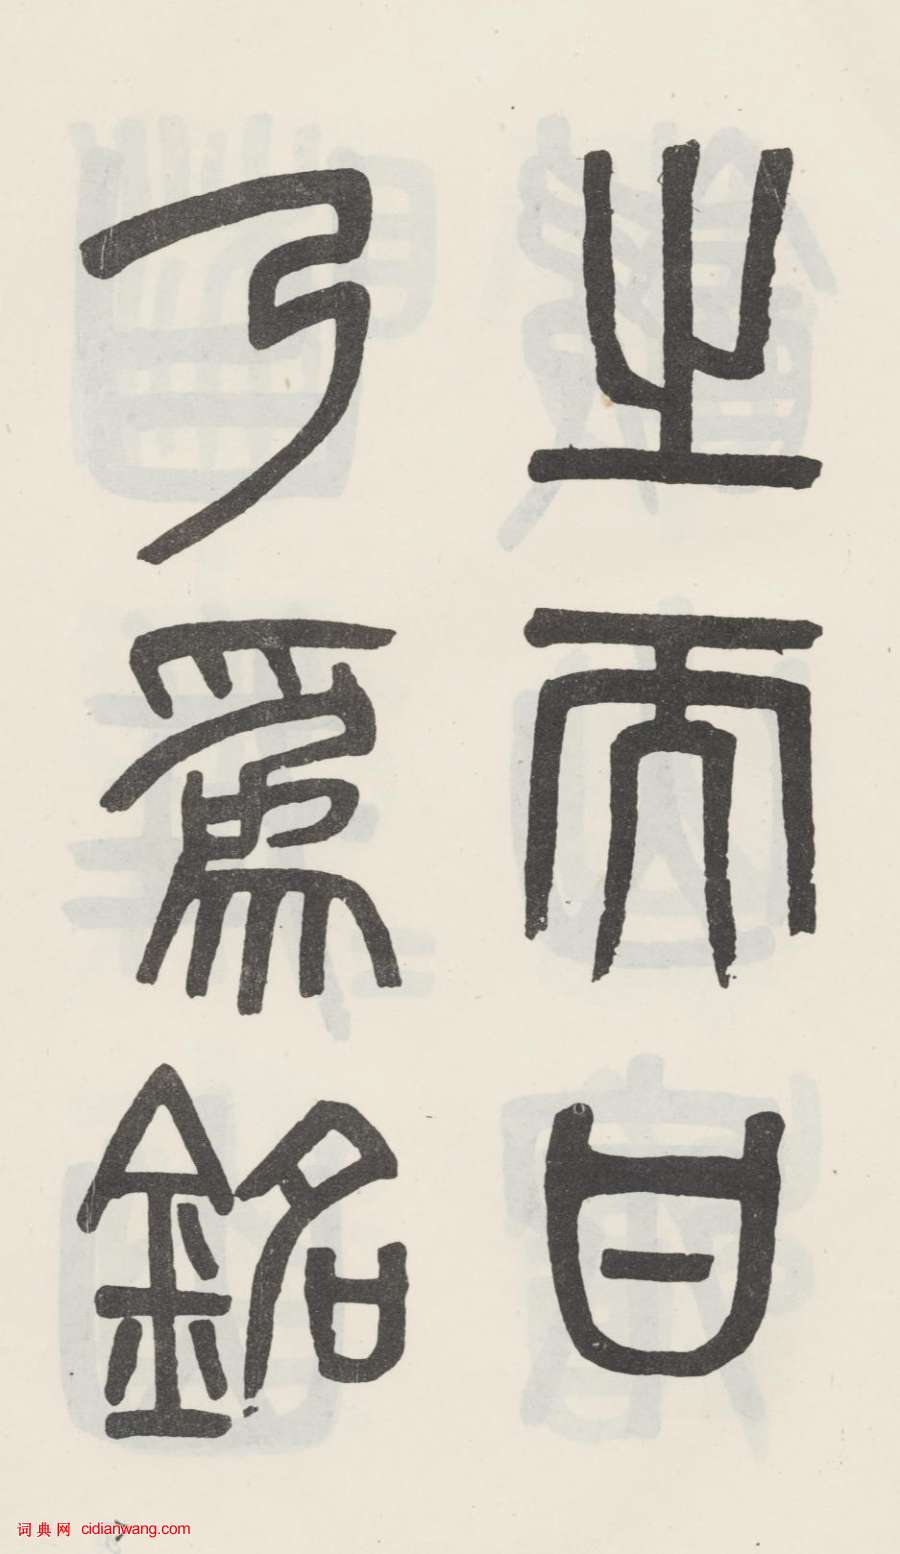 之而甘
乃爲銘
词典网 cidianwang.com